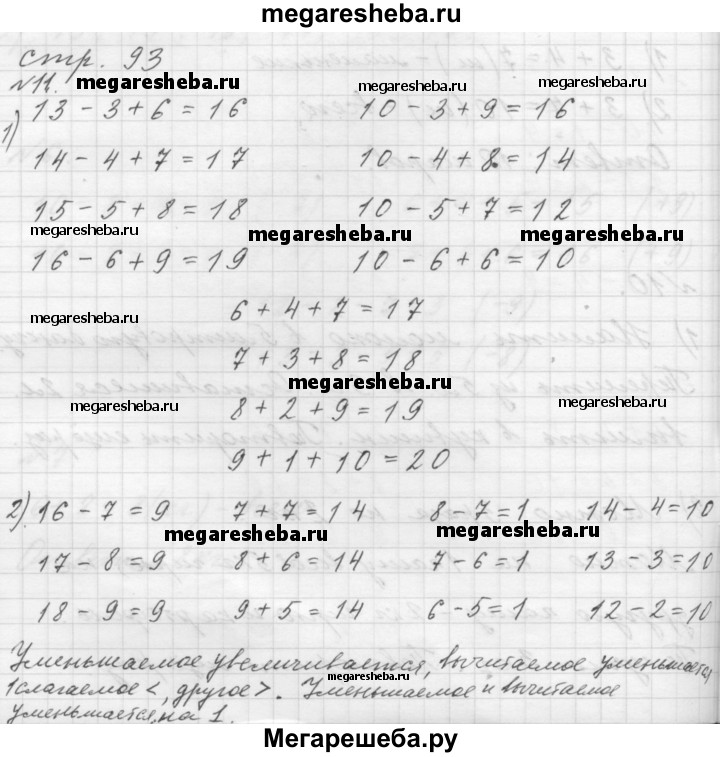 megaresheba.ru
стр. 93
№11. megaresheba.ru megaresheba.ru megaresheba.ru
1) 13 - 3 + 6 = 16 10 - 3 + 9 = 16
14 - 4 + 7 = 17 10 - 4 + 8 = 14
15 - 5 + 8 = 18 10 - 5 + 7 = 12
megaresheba.ru megaresheba.ru megaresheba.ru
16 - 6 + 9 = 19 10 - 6 + 6 = 10
6 + 4 + 7 = 17
megaresheba.ru megaresheba.ru
7 + 3 + 8 = 18
megaresheba.ru
megaresheba.ru megaresheba.ru
8 + 2 + 9 = 19
9 + 1 + 10 = 20
2) 16 - 7 = 9 7 + 7 = 14 8 - 7 = 1 14 - 4 = 10
megaresheba.ru megaresheba.ru
17 - 8 = 9 8 + 6 = 14 7 - 6 = 1 13 - 3 = 10
18 - 9 = 9 9 + 5 = 14 6 - 5 = 1 12 - 2 = 10
Уменьшаемое увеличивается, вычитаемое уменьшается
megaresheba.ru
1 слагаемое <, другое >. Уменьшаемое и вычитаемое
уменьшается на 1.
Мегарешеба.ру